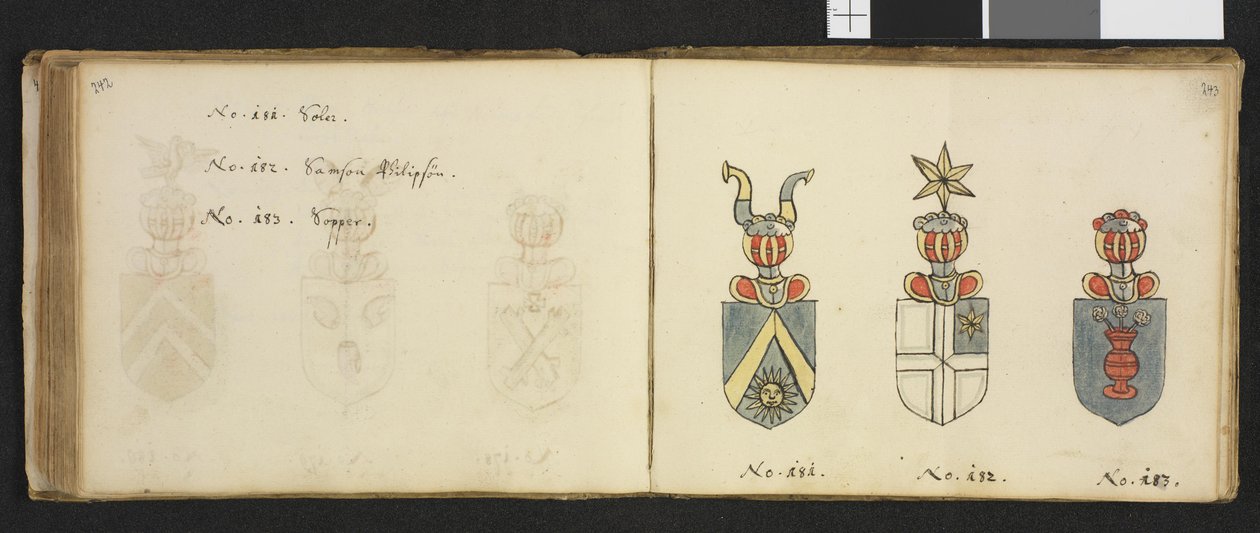 242
No. 181. Soler.
No. 182. Samson Philipsön.
No. 183. Sopper.
243
No. 181.
No. 182.
No. 183.